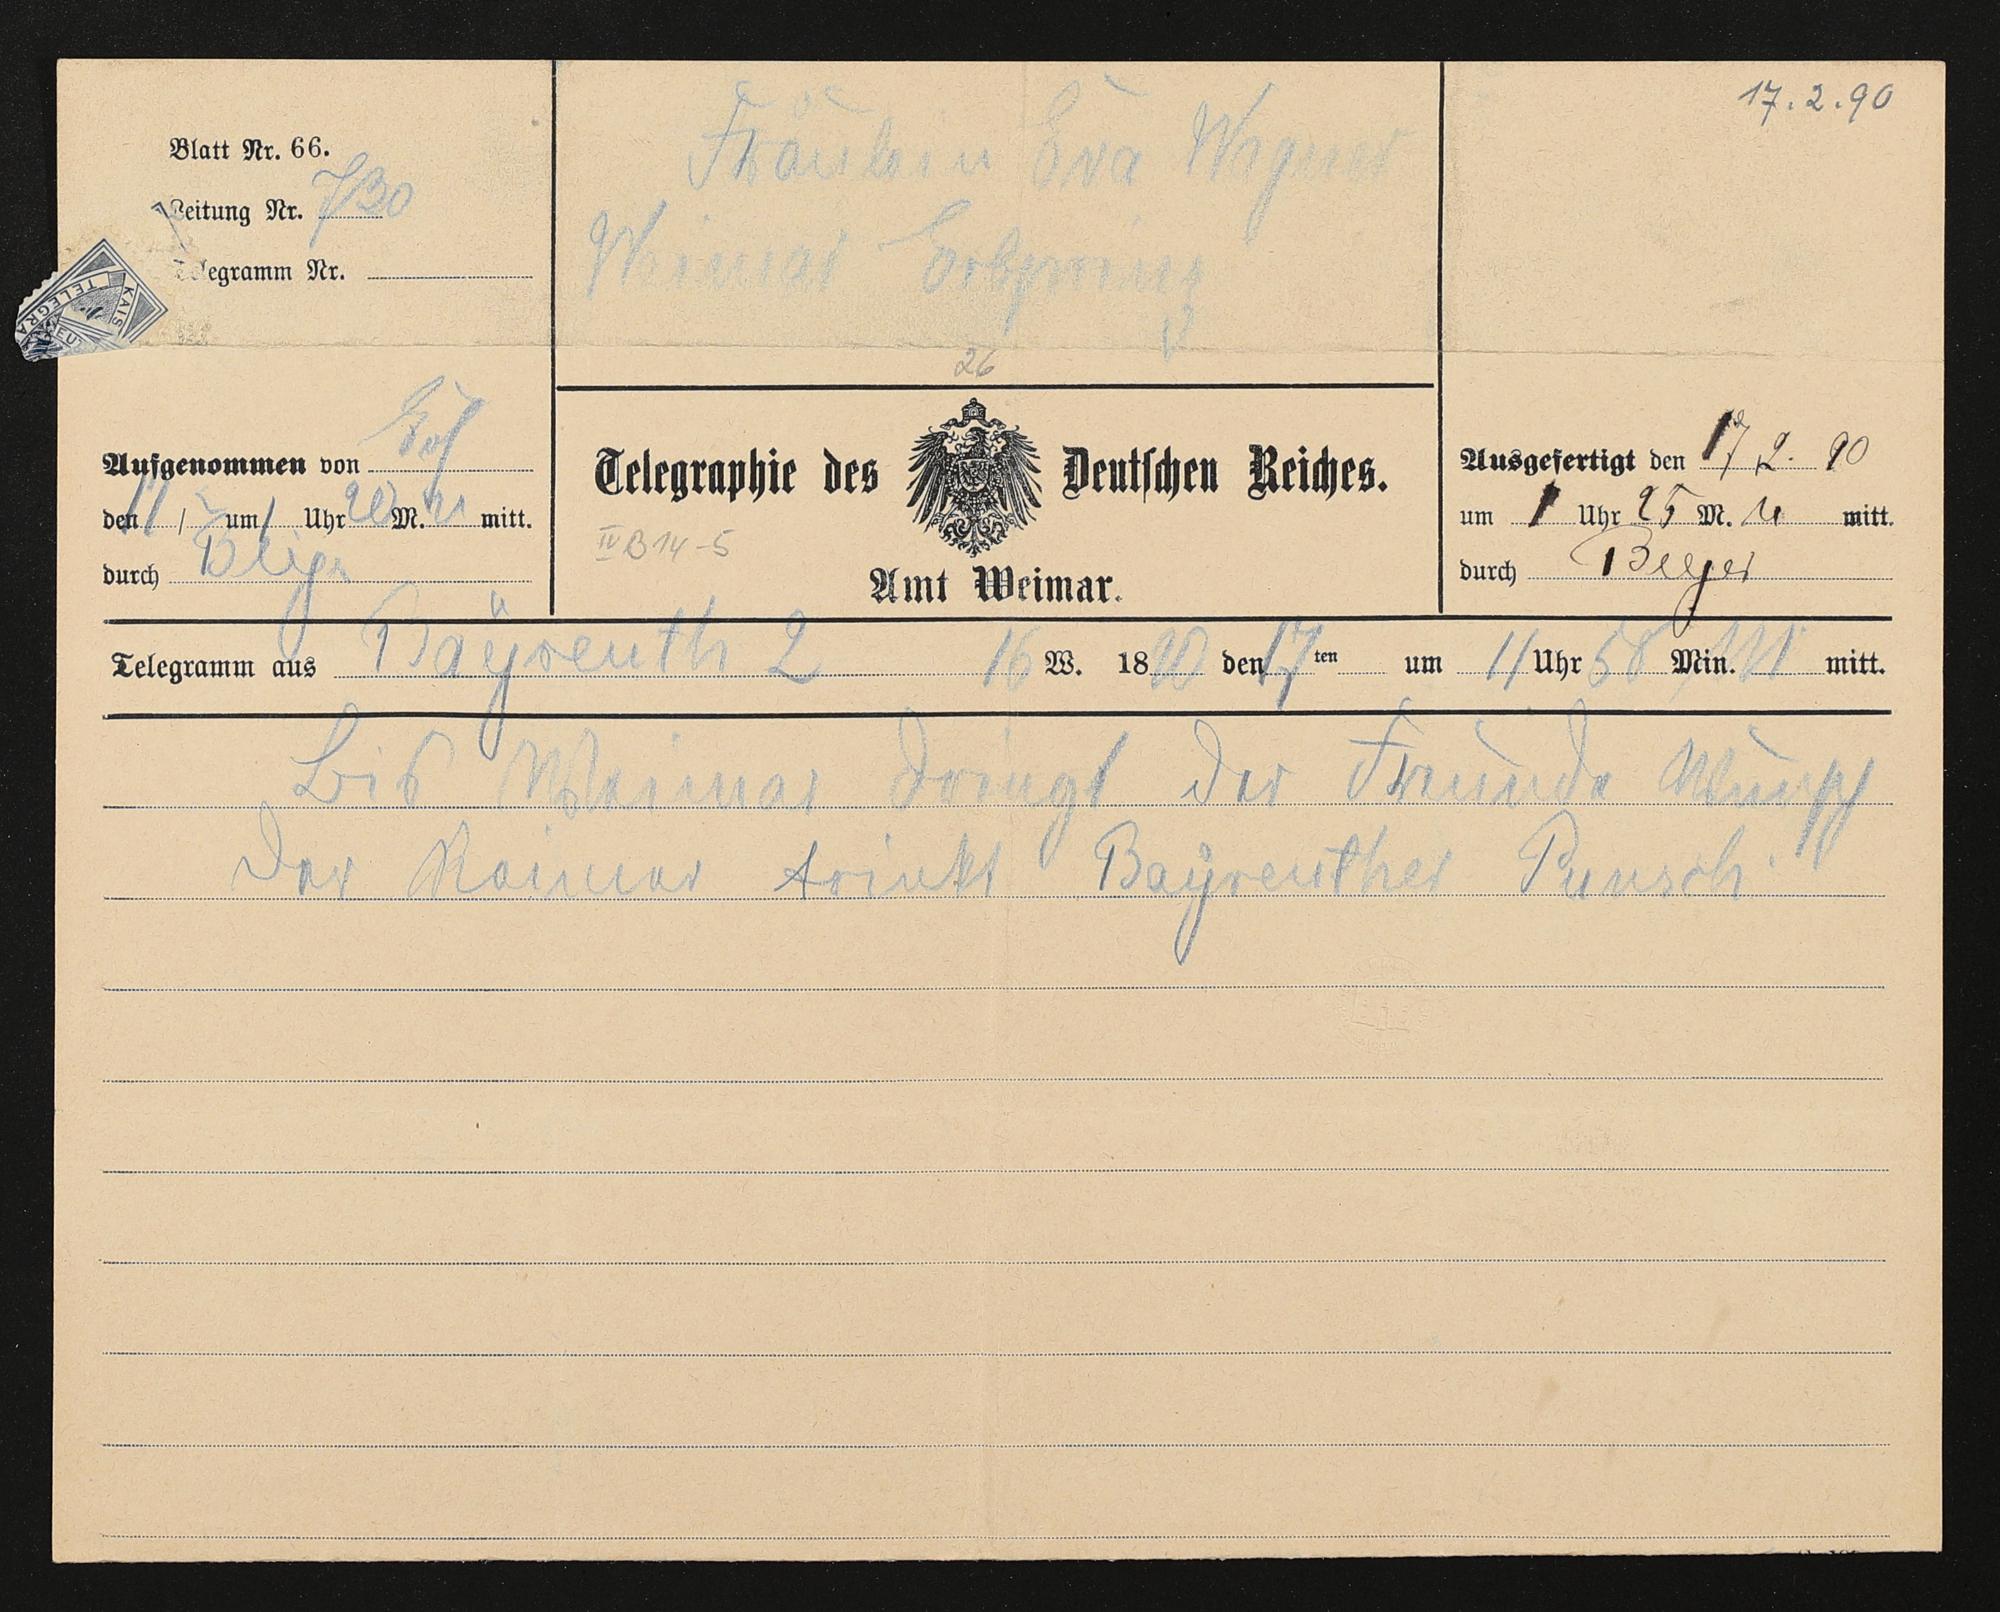 17.2.90
Blatt Nr. 66.
Leitung Nr. 730
Telegramm Nr.
KAIS
TELEGRA
Fräulein Eva Wagner
Weimar Erbprinz
26
Aufgenommen von
den um 1 Uhr M. mitt.
durch
Telegraphie des Deutschen Reiches.
IV B 14-5
Amt Weimar.
Ausgefertigt den 17 2. 90
um 1 Uhr 25 M. N mitt.
durch Beyer
Telegramm aus Bayreuth 2 16 W. 1890 den 17ten um 11 Uhr 58 Min. mitt.
Bis Weimar dringt der Freunde Wunsch
Der Reimer trinkt Bayreuther Punsch.